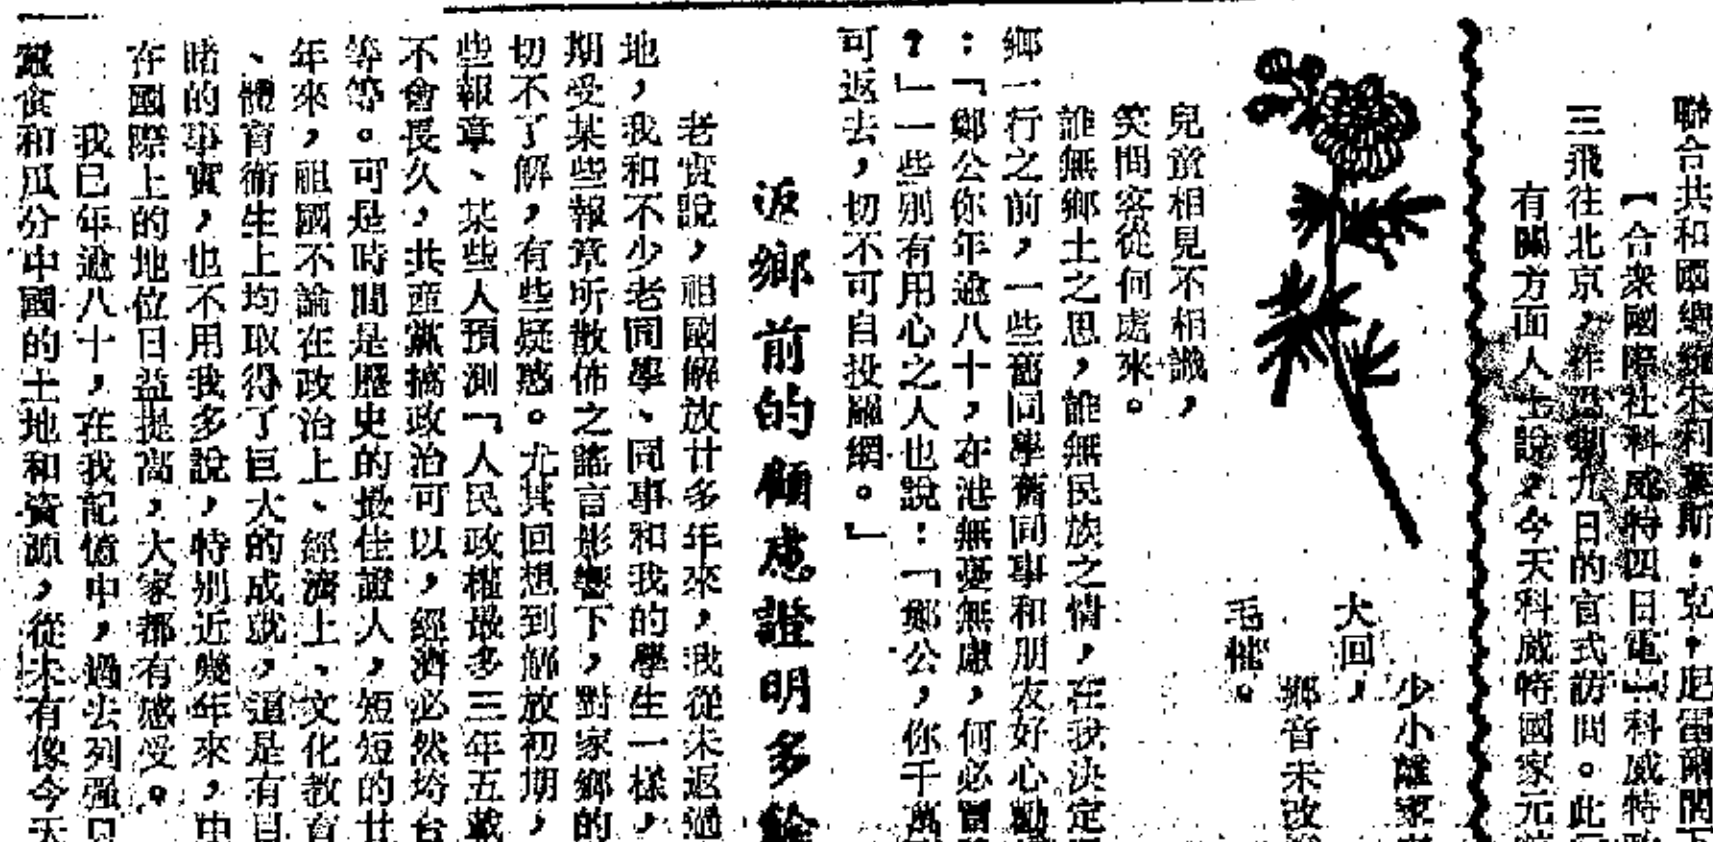 聯合共和國總統朱利葉斯·克·尼雷爾閣下
【合衆國際社科威特四日電】科威特
三飛往北京,作週期九日的官式訪問。此
有關方面人士說,今天科威特國家元
少小離家
大回,
鄉音未改
毛催。
兒童相見不相識,
笑問客從何處來。
誰無鄉土之思,誰無民族之情,在我決定
鄉一行之前,一些舊同學舊同事和朋友好心勸
:「鄉公你年逾八十,在港無憂無慮,何必冒
?」一些別有用心之人也說:「鄉公,你千萬
可返去,切不可自投羅網。」
返鄉前的顧慮證明多餘
老實說,祖國解放廿多年來,我從未返過
地,我和不少老同學、同事和我的學生一樣,
期受某些報章所散佈之謠言影響下,對家鄉的
切不了解,有些疑惑。尤其回想到解放初期,
些報章、某些人預測「人民政權最多三年五載
不會長久,共產黨搞政治可以,經濟必然垮台
等等。可是時間是歷史的最佳證人,短短的廿
年來,祖國不論在政治上、經濟上、文化教育
、體育衞生上均取得了巨大的成就,這是有目
睹的事實,也不用我多說,特別近幾年來,中
在國際上的地位日益提高,大家都有感受。
我已年逾八十,在我記憶中,過去列强只
蠶食和瓜分中國的土地和資源,從未有像今天